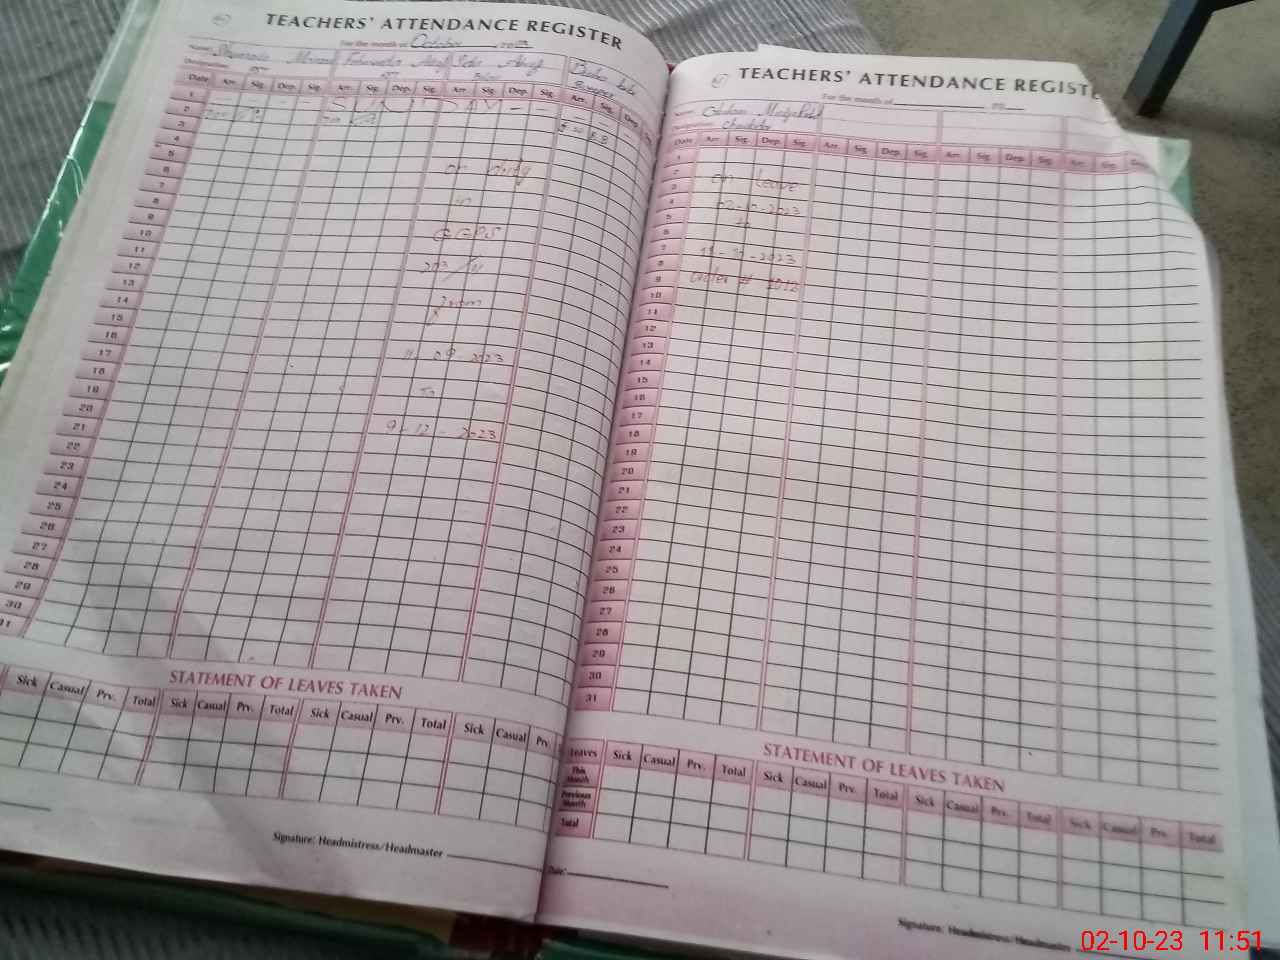 TEACHERS' ATTENDANCE REGISTER
For the month of October
Name
Designation
Date Arr. Sig. Dep. Sig. Arr. Sig. Dep. Sig. Arr. Sig. Dep. Sig. Arr. Sig. Dep.
1
2
3
4
5
6
7
8
9
10
11
12
13
14
15
16
17
18
19
20
21
22
23
24
25
26
27
28
29
30
31
SUNDAY
on duty
in
GGPS
from
11-09-2023
to
9-12-2023
STATEMENT OF LEAVES TAKEN
Sick Casual Prv. Total Sick Casual Prv. Total Sick Casual Prv. Total Sick Casual Prv.
Signature: Headmistress/Headmaster
TEACHERS' ATTENDANCE REGISTE
For the month of 20
Name Ghulam
Date Arr. Sig. Dep. Sig. Arr. Sig. Dep. Sig. Arr. Sig. Dep. Sig. Arr. Sig. Dep.
1
2
3
4
5
6
7
8
9
10
11
12
13
14
15
16
17
18
19
20
21
22
23
24
25
26
27
28
29
30
31
on leave
02-10-2023
to
11-10-2023
order # 1012
STATEMENT OF LEAVES TAKEN
Leaves Sick Casual Prv. Total Sick Casual Prv. Total Sick Casual Prv. Total Sick Casual Prv. Total
This Month
Previous Month
Total
Date:
Signature: Headmistress/Headmaster
02-10-23 11:51